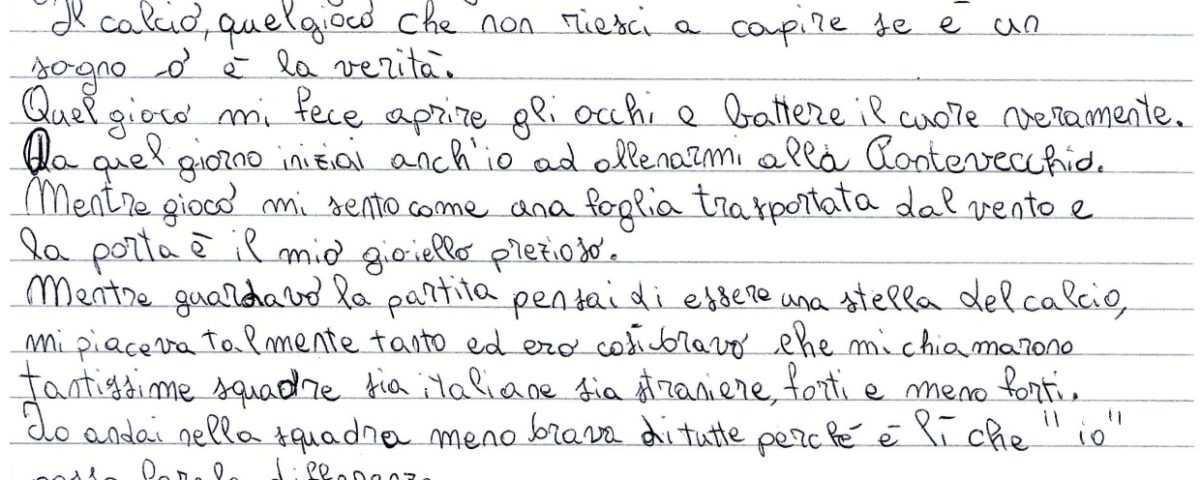 Il calcio, quel gioco che non riesci a capire se è un
sogno o è la verità.
Quel gioco mi fece aprire gli occhi e battere il cuore veramente.
Da quel giorno iniziai anch'io ad allenarmi alla Pontevecchio.
Mentre gioco mi sento come una foglia trasportata dal vento e
la porta è il mio gioiello prezioso.
Mentre guardavo la partita pensai di essere una stella del calcio,
mi piaceva talmente tanto ed ero così bravo che mi chiamarono
tantissime squadre sia italiane sia straniere, forti e meno forti.
Io andai nella squadra meno brava di tutte perché è lì che "io"